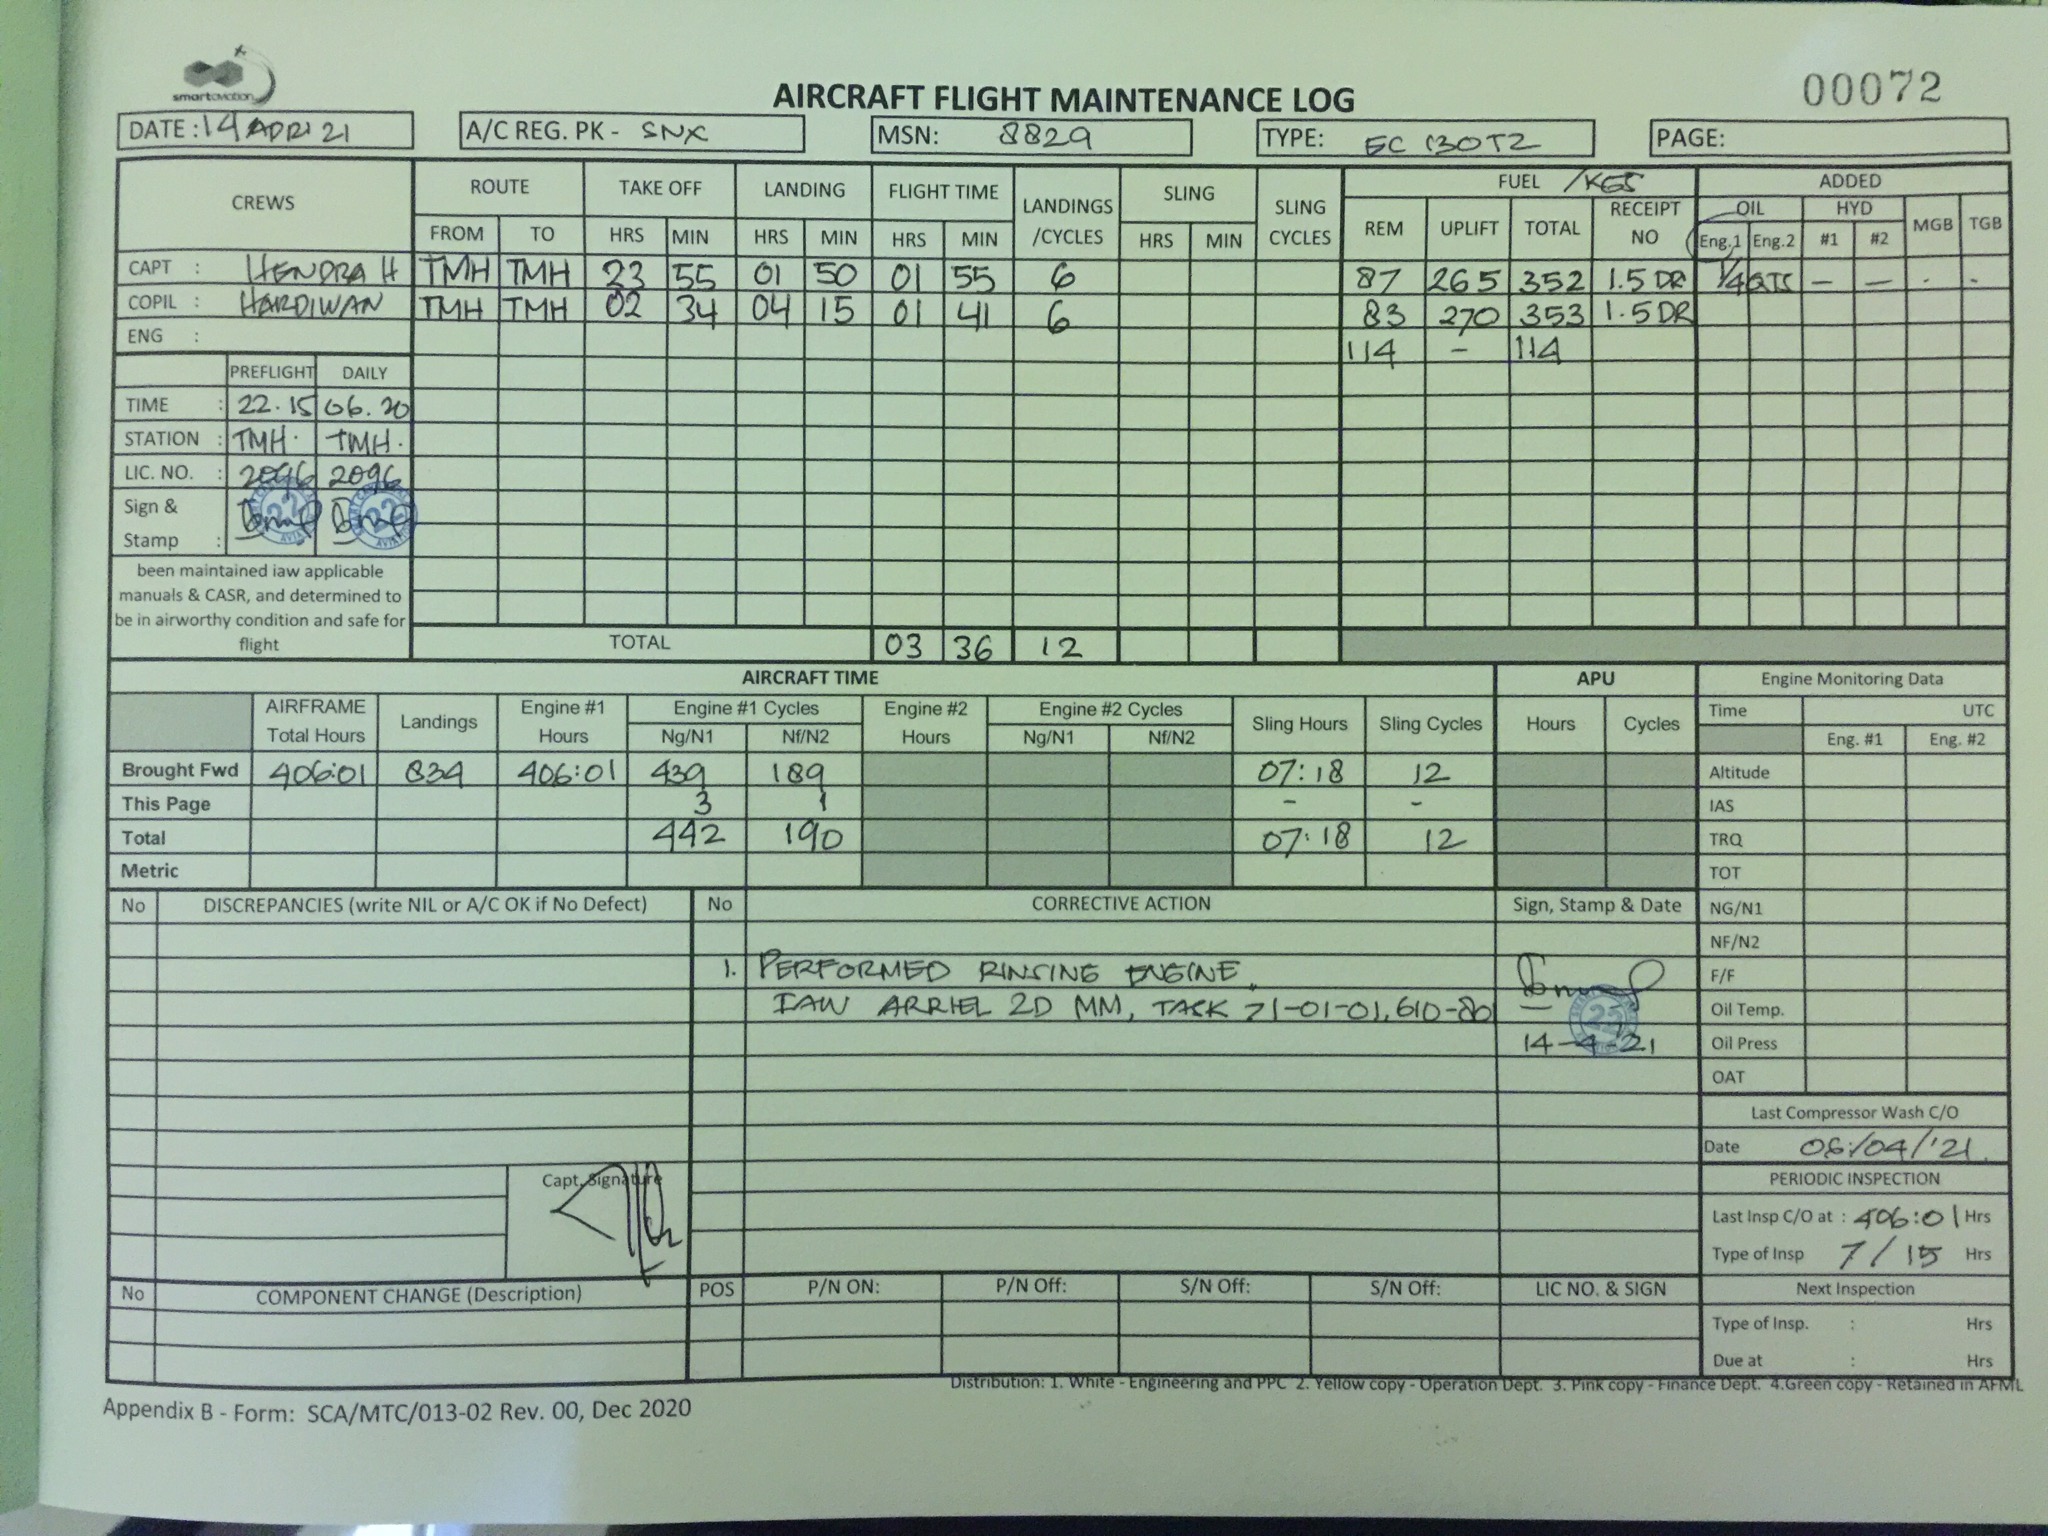 smartaviation
AIRCRAFT FLIGHT MAINTENANCE LOG
00072
DATE : 14 APRI 21
A/C REG. PK - SNX
MSN: 8829
TYPE: EC 130T2
PAGE:
CREWS ROUTE TAKE OFF LANDING FLIGHT TIME LANDINGS /CYCLES SLING SLING CYCLES FUEL /KGS ADDED
FROM TO HRS MIN HRS MIN HRS MIN HRS MIN REM UPLIFT TOTAL RECEIPT NO OIL HYD MGB TGB
Eng.1 Eng.2 #1 #2
CAPT : HENDRA H TMH TMH 23 55 01 50 01 55 6 87 265 352 1.5 DR 1/4 QTS - - - -
COPIL : HARDIWAN TMH TMH 02 34 04 15 01 41 6 83 270 353 1.5 DR
ENG : 114 - 114
PREFLIGHT DAILY
TIME : 22.15 06.20
STATION : TMH. TMH.
LIC. NO. : 2096 2096
Sign &
Stamp : 22 22
been maintained iaw applicable
manuals & CASR, and determined to
be in airworthy condition and safe for
flight
TOTAL 03 36 12
AIRCRAFT TIME APU Engine Monitoring Data
AIRFRAME Total Hours Landings Engine #1 Hours Engine #1 Cycles Engine #2 Hours Engine #2 Cycles Sling Hours Sling Cycles Hours Cycles
Ng/N1 Nf/N2 Ng/N1 Nf/N2
Brought Fwd 406:01 834 406:01 439 189 07:18 12
This Page 3 1 - -
Total 442 190 07:18 12
Metric
Time UTC
Eng. #1 Eng. #2
Altitude
IAS
TRQ
TOT
NG/N1
NF/N2
F/F
Oil Temp.
Oil Press
OAT
No DISCREPANCIES (write NIL or A/C OK if No Defect) No CORRECTIVE ACTION Sign, Stamp & Date
1. PERFORMED RINSING ENGINE
IAW ARRIEL 2D MM, TASK 71-01-01,610-80
22
14-4-21
Capt. Signature
Last Compressor Wash C/O
Date 06/04/'21.
PERIODIC INSPECTION
Last Insp C/O at : 406:01 Hrs
Type of Insp 7/15 Hrs
Next Inspection
Type of Insp. : Hrs
Due at : Hrs
No COMPONENT CHANGE (Description) POS P/N ON: P/N Off: S/N Off: S/N Off: LIC NO. & SIGN
Distribution: 1. White - Engineering and PPC 2. Yellow copy - Operation Dept. 3. Pink copy - Finance Dept. 4.Green copy - Retained in AFML
Appendix B - Form: SCA/MTC/013-02 Rev. 00, Dec 2020